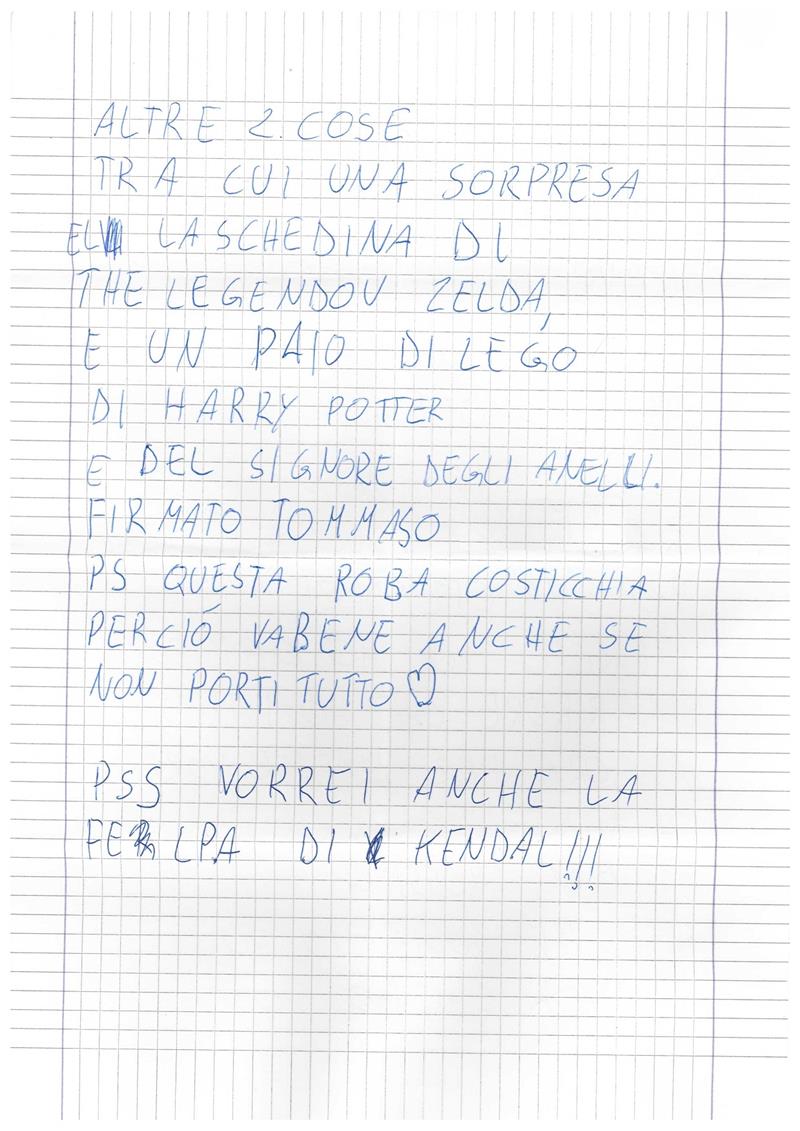 ALTRE 2. COSE
TRA CUI UNA SORPRESA
E LA SCHEDINA DI
THE LEGENDOV ZELDA,
E UN PAIO DI LEGO
DI HARRY POTTER
E DEL SIGNORE DEGLI ANELLI.
FIRMATO TOMMASO
PS QUESTA ROBA COSTICCHIA
PERCIÓ VABENE ANCHE SE
NON PORTI TUTTO ♡
PSS VORREI ANCHE LA
FELPA DI KENDAL!!!